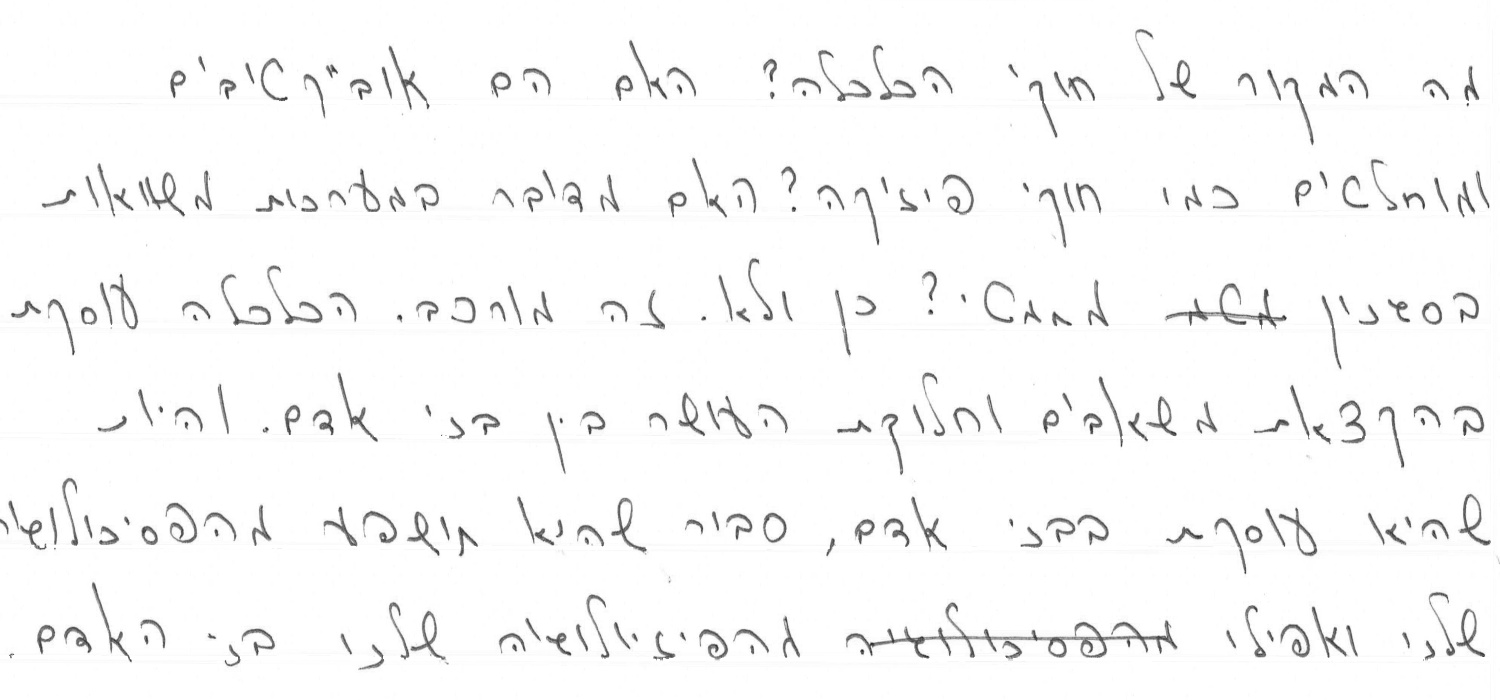 מה המקור של חוקי הכלכלה? האם הם אובייקטיבים
ומוחלטים כמו חוקי פיזיקה? האם מדובר במערכות משוואות
בסגנון מתמטי? כן ולא. זה מורכב. הכלכלה עוסקת
בהקצאת משאבים וחלוקת העושר בין בני אדם. והיות
שהיא עוסקת בבני אדם, סביר שהיא תושפע מהפסיכולוגיה
שלנו ואפילו מהפסיכולוגיה מהפיזיולוגיה שלנו בני האדם.